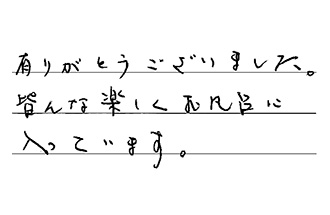 有りがとうございました。
皆んな楽しくお風呂に
入っています。